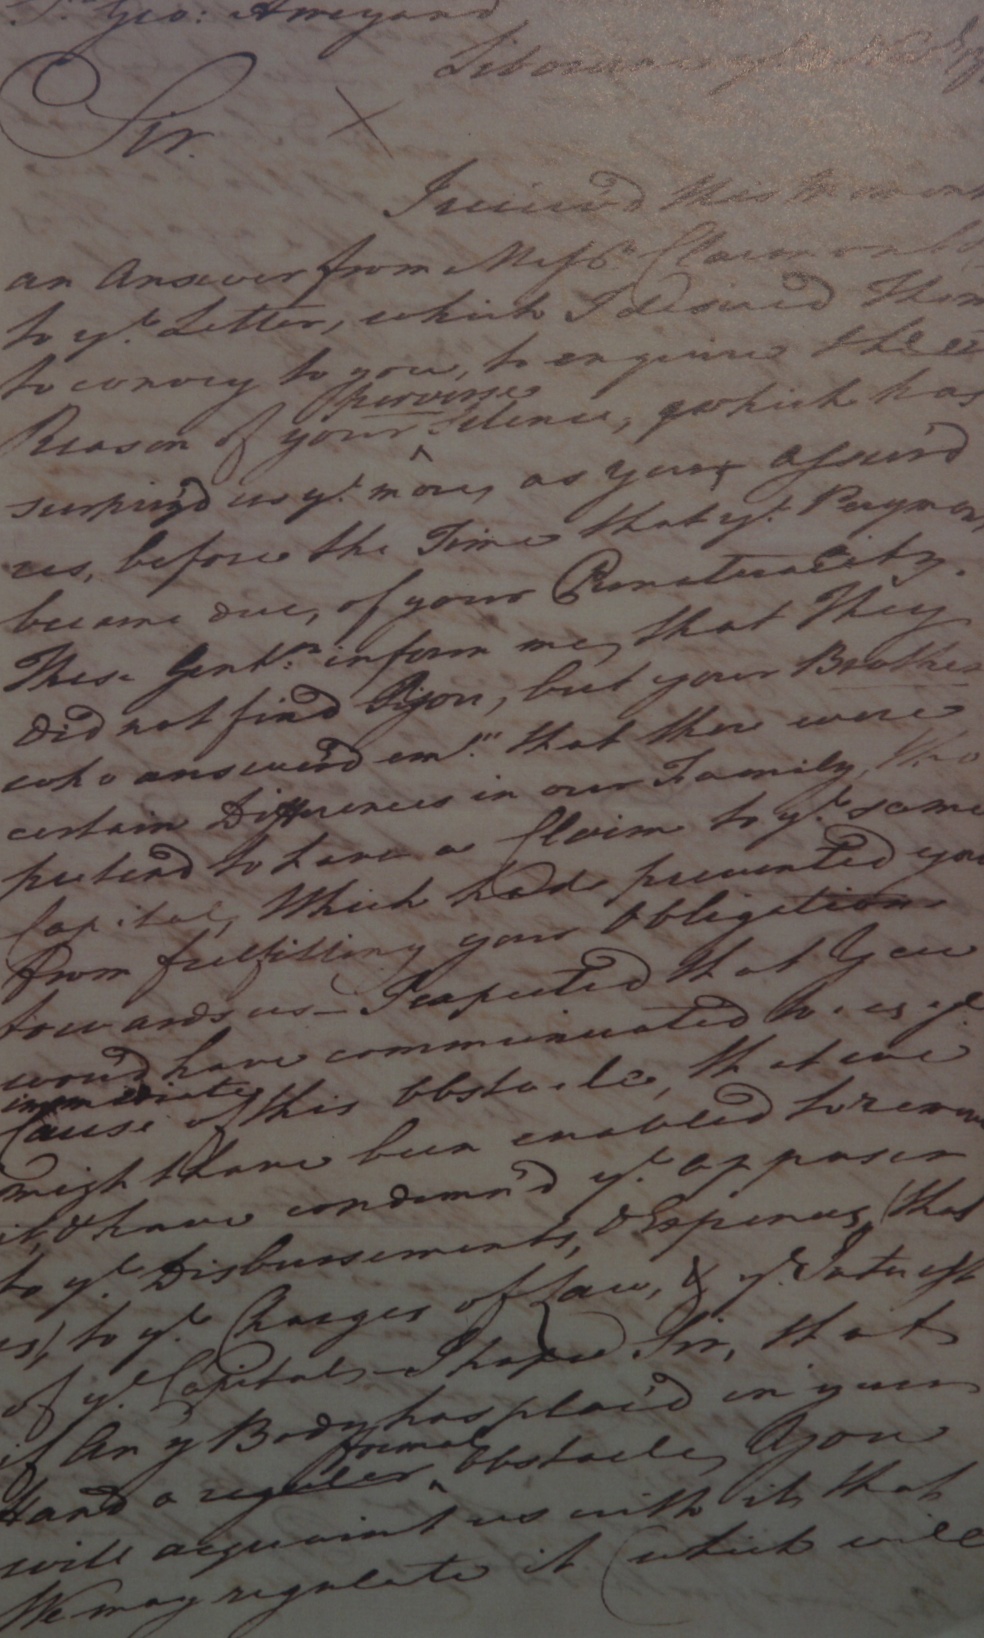 Geo: Amyand
Sir.
I receiv'd this Moment
an Answer from Mess.rs
to y.e Letter, which I desired Them
to convey to you, to enquire the
Reason of your perverse Silence, which has
surpriz'd us y.e more, as you assur'd
us, before the Time that y.e Paymen
became due, of your Punctuality.
These Gent.n inform me, that They
did not find you, but your Brother
who answer'd em "that there were
certain Differences in our Family, who
pretend to have a Claim to y.e same
Capital, Which had prevented you
from fulfilling your Obligations
towards us — I expected that You
wou'd have communicated to us y.e
immediate
Cause of this Obstacle, that we
might have been enabled to remove
it, & have condemn'd y.e opposer
to y.e Disbursements, & Expences, (that
is) to y.e Charges of Law, & y.e Interest
of y.e Capital — I hope Sir, that
if Any Body has plac'd in your
formal
Hand a regular Obstacle, you
will acquaint us with it, that
We may regulate it (which will